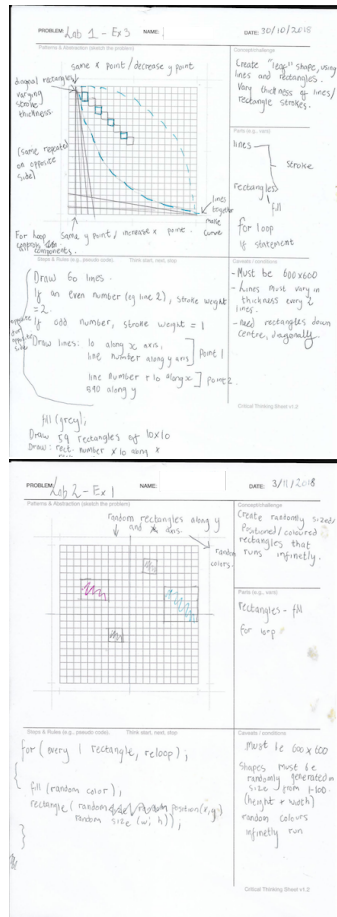 PROBLEM: Lab 1 - Ex 3 NAME: DATE: 30/10/2018
Patterns & Abstraction (sketch the problem)
same x point / decrease y point
diagonal rectangles
varying
stroke
thickness.
(same repeated
on opposite
side)
lines
together
make
curve
same y point / increase x point.
For loop
controls
all components.
Concept/challenge
Create "leaf" shape, using
lines and rectangles.
Vary thickness of lines/
rectangle strokes.
Parts (e.g., vars)
lines
stroke
rectangles
fill
for loop
if statement
Steps & Rules (e.g., pseudo code). Think start, next, stop
Draw 60 lines.
If an even number (eg line 2), stroke weight
= 2.
If odd number, stroke weight = 1
Draw lines: 10 along x axis,
line number along y axis
Point 1
line number + 10 along x
590 along y
Point 2.
opposite
sides
fill (grey),
Draw 59 rectangles of 10x10
Draw: rect. number x 10 along x
Caveats / conditions
- Must be 600x600
- Lines must vary in
thickness every 2
lines.
- need rectangles down
centre, diagonally
Critical Thinking Sheet v1.2
PROBLEM: Lab 2 - Ex 1 NAME: DATE: 3/11/2018
Patterns & Abstraction (sketch the problem)
random rectangles along y
and x axis.
random
colors.
Concept/challenge
Create randomly sized/
positioned/coloured
rectangles that
runs infinetly.
Parts (e.g., vars)
rectangles - fill
for loop
Steps & Rules (e.g., pseudo code). Think start, next, stop
for (every 1 rectangle, reloop);
{
fill (random color);
rectangle (random position (x,y)
random size (w, h));
}
Caveats / conditions
Must be 600 x 600
Shapes must be
randomly generated in
size from 1-100.
(height + width)
random colours
infinetly run
Critical Thinking Sheet v1.2